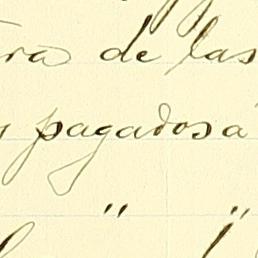 de las
pagados á
" "